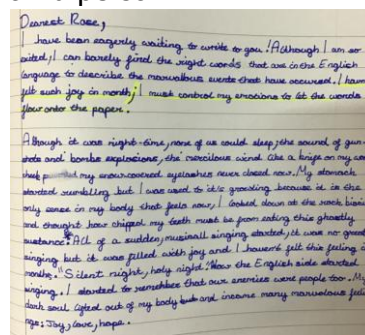 Dearest Rose,
I have been eagerly waiting to write to you! Although I am so
excited, I can barely find the right words that are in the English
language to describe the marvallous events that have occurred. I haven't
felt such joy in month; I must control my emotions to let the words
flow onto the paper.
Although it was night-time, none of us could sleep; the sound of gun-
shots and bombs explosions, the merciless wind like a knife on my
cheek my snowcovered eyelashes never closed now. My stomach
started rumbling but I was used to it's growling because it is the
only sense in my body that feels now, I looked down at the rock
and thought how chipped my teeth must be from eating this ghostly
sustance. All of a sudden, musicall singing started, it was no great
singing but it was filled with joy and I haven't felt this feeling in
months. "Silent night, holy night." Now the English side started
singing. I started to remember that our enemies were people too. My
dark soul lifted out of my body and many marvelous
Joy, love, hope.